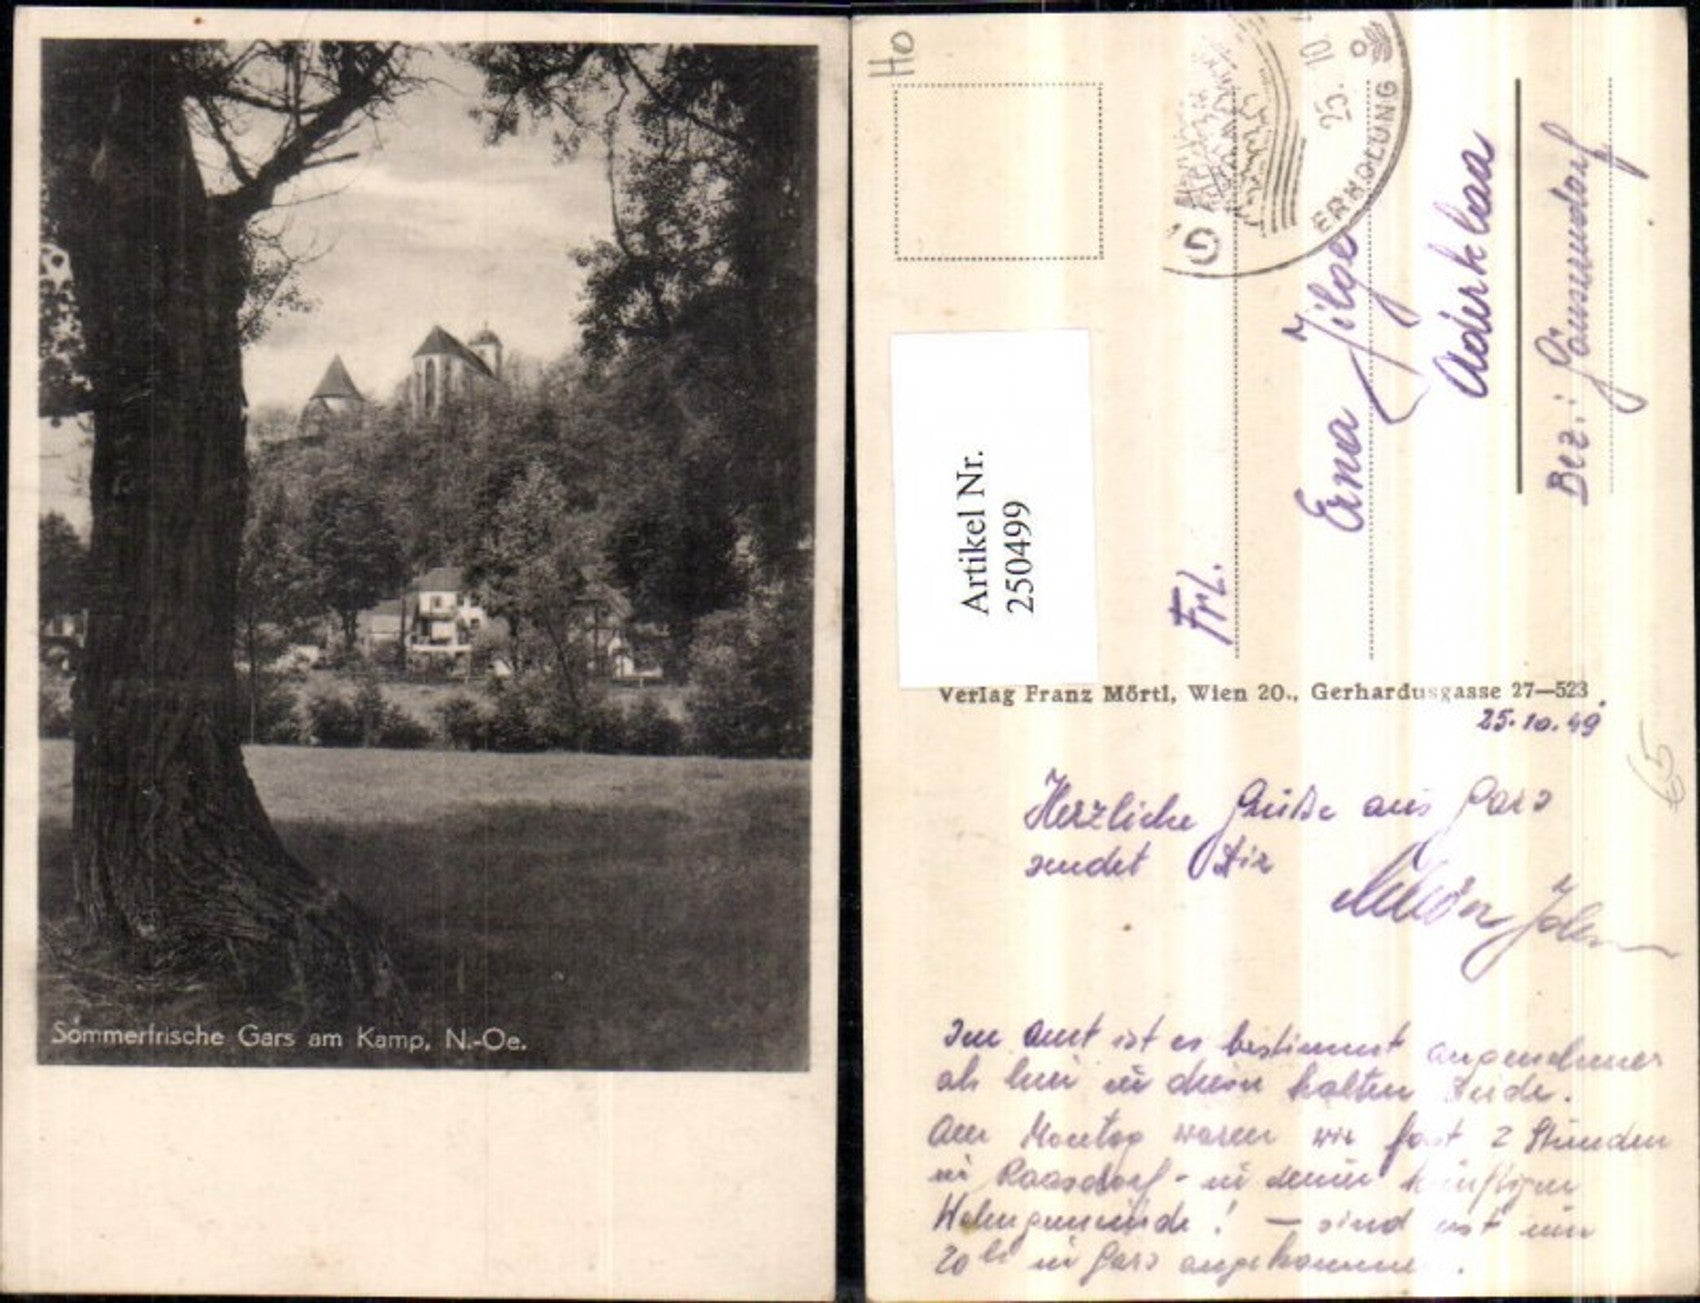 Sommerfrische Gars am Kamp, N.-Oe.
HO
25. 10.
ERHOLUNG
Artikel Nr.
250499
Frl.
Erna Jilge
Aderklaa
Bez.: Gänserndorf
Verlag Franz Mörtl, Wien 20., Gerhardusgasse 27—523
25.10.49
65
Herzliche Grüße aus Gars
sendet Dir
Im Amt ist es bestimmt angenehmer
als hier in dieser kalten Bude.
Am Montag waren wir fast 2 Stunden
in Raasdorf - in deiner künftigen
Wohngemeinde! — sind erst um
20h in Gars angekommen.